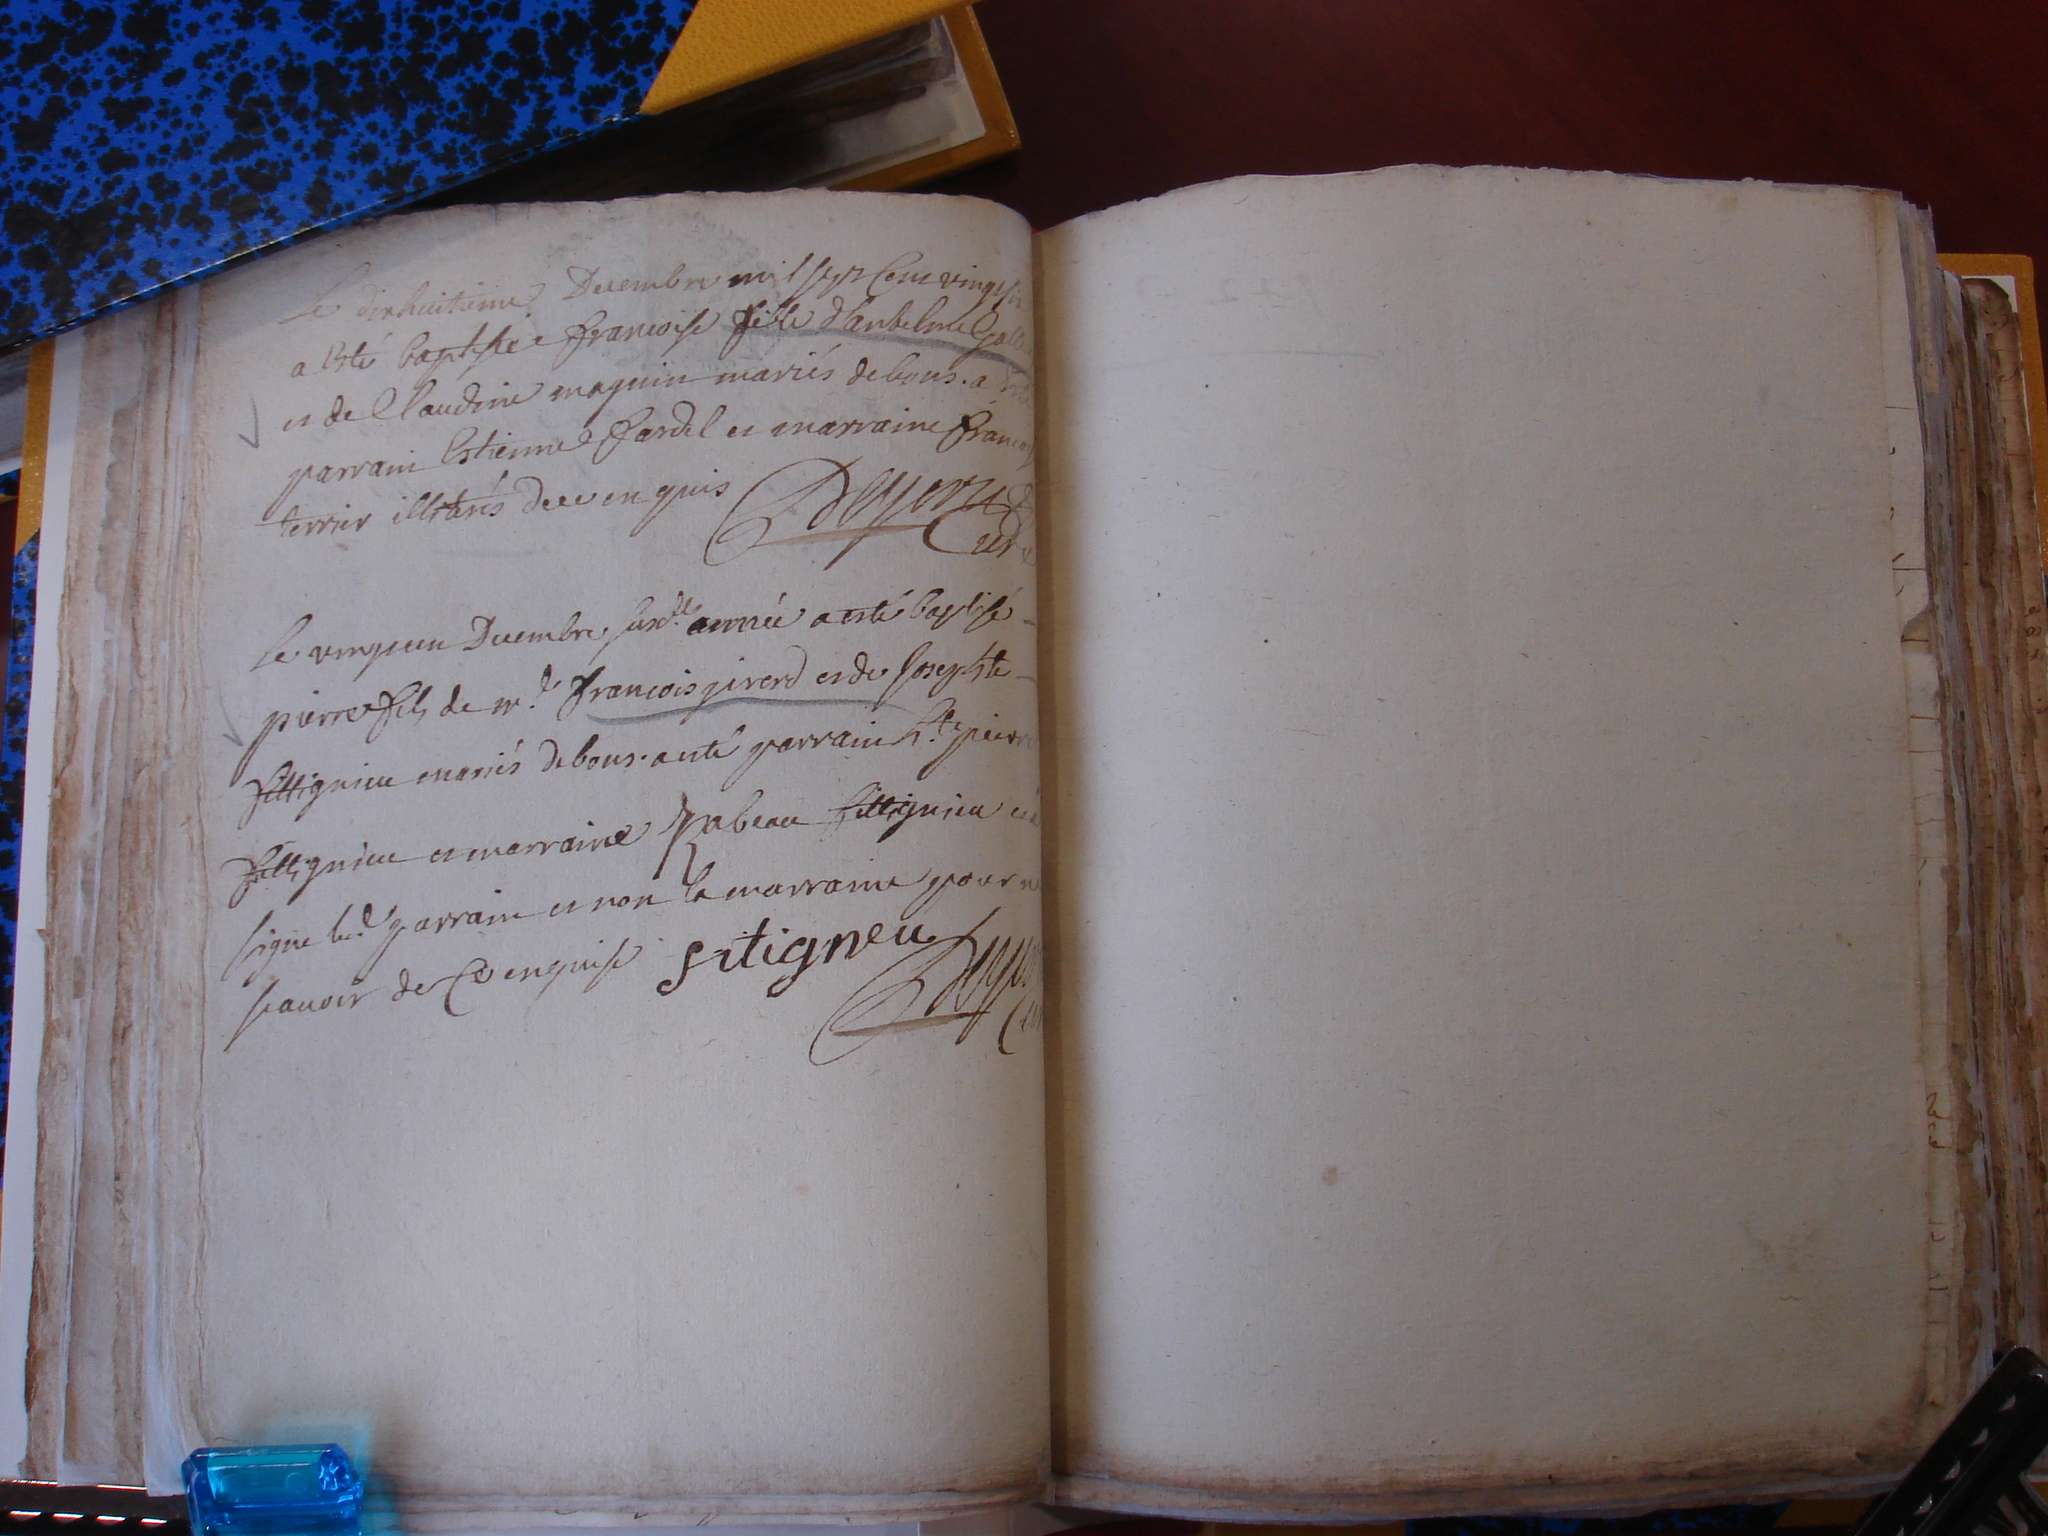 Le dixhuitieme Decembre mil sept cent vingt six
a esté baptisée francoise fille d'anthelme Gall
et de Claudine maguin mariés de bons. a esté
parrain Estienne fardel et marraine francois
terrier illitérés de ce enquis Deyeru
Curé
Le vingt un Decembre susd.e année a esté baptisé
pierre fils de m.e francois girerd et de Josephte
fittignieu mariés de bons. a esté parrain h.te pierre
fittignieu et marraine ysabeau fittignieu et a
signé led. parrain et non la marraine pour ne
scavoir de ce enquise fitigneu